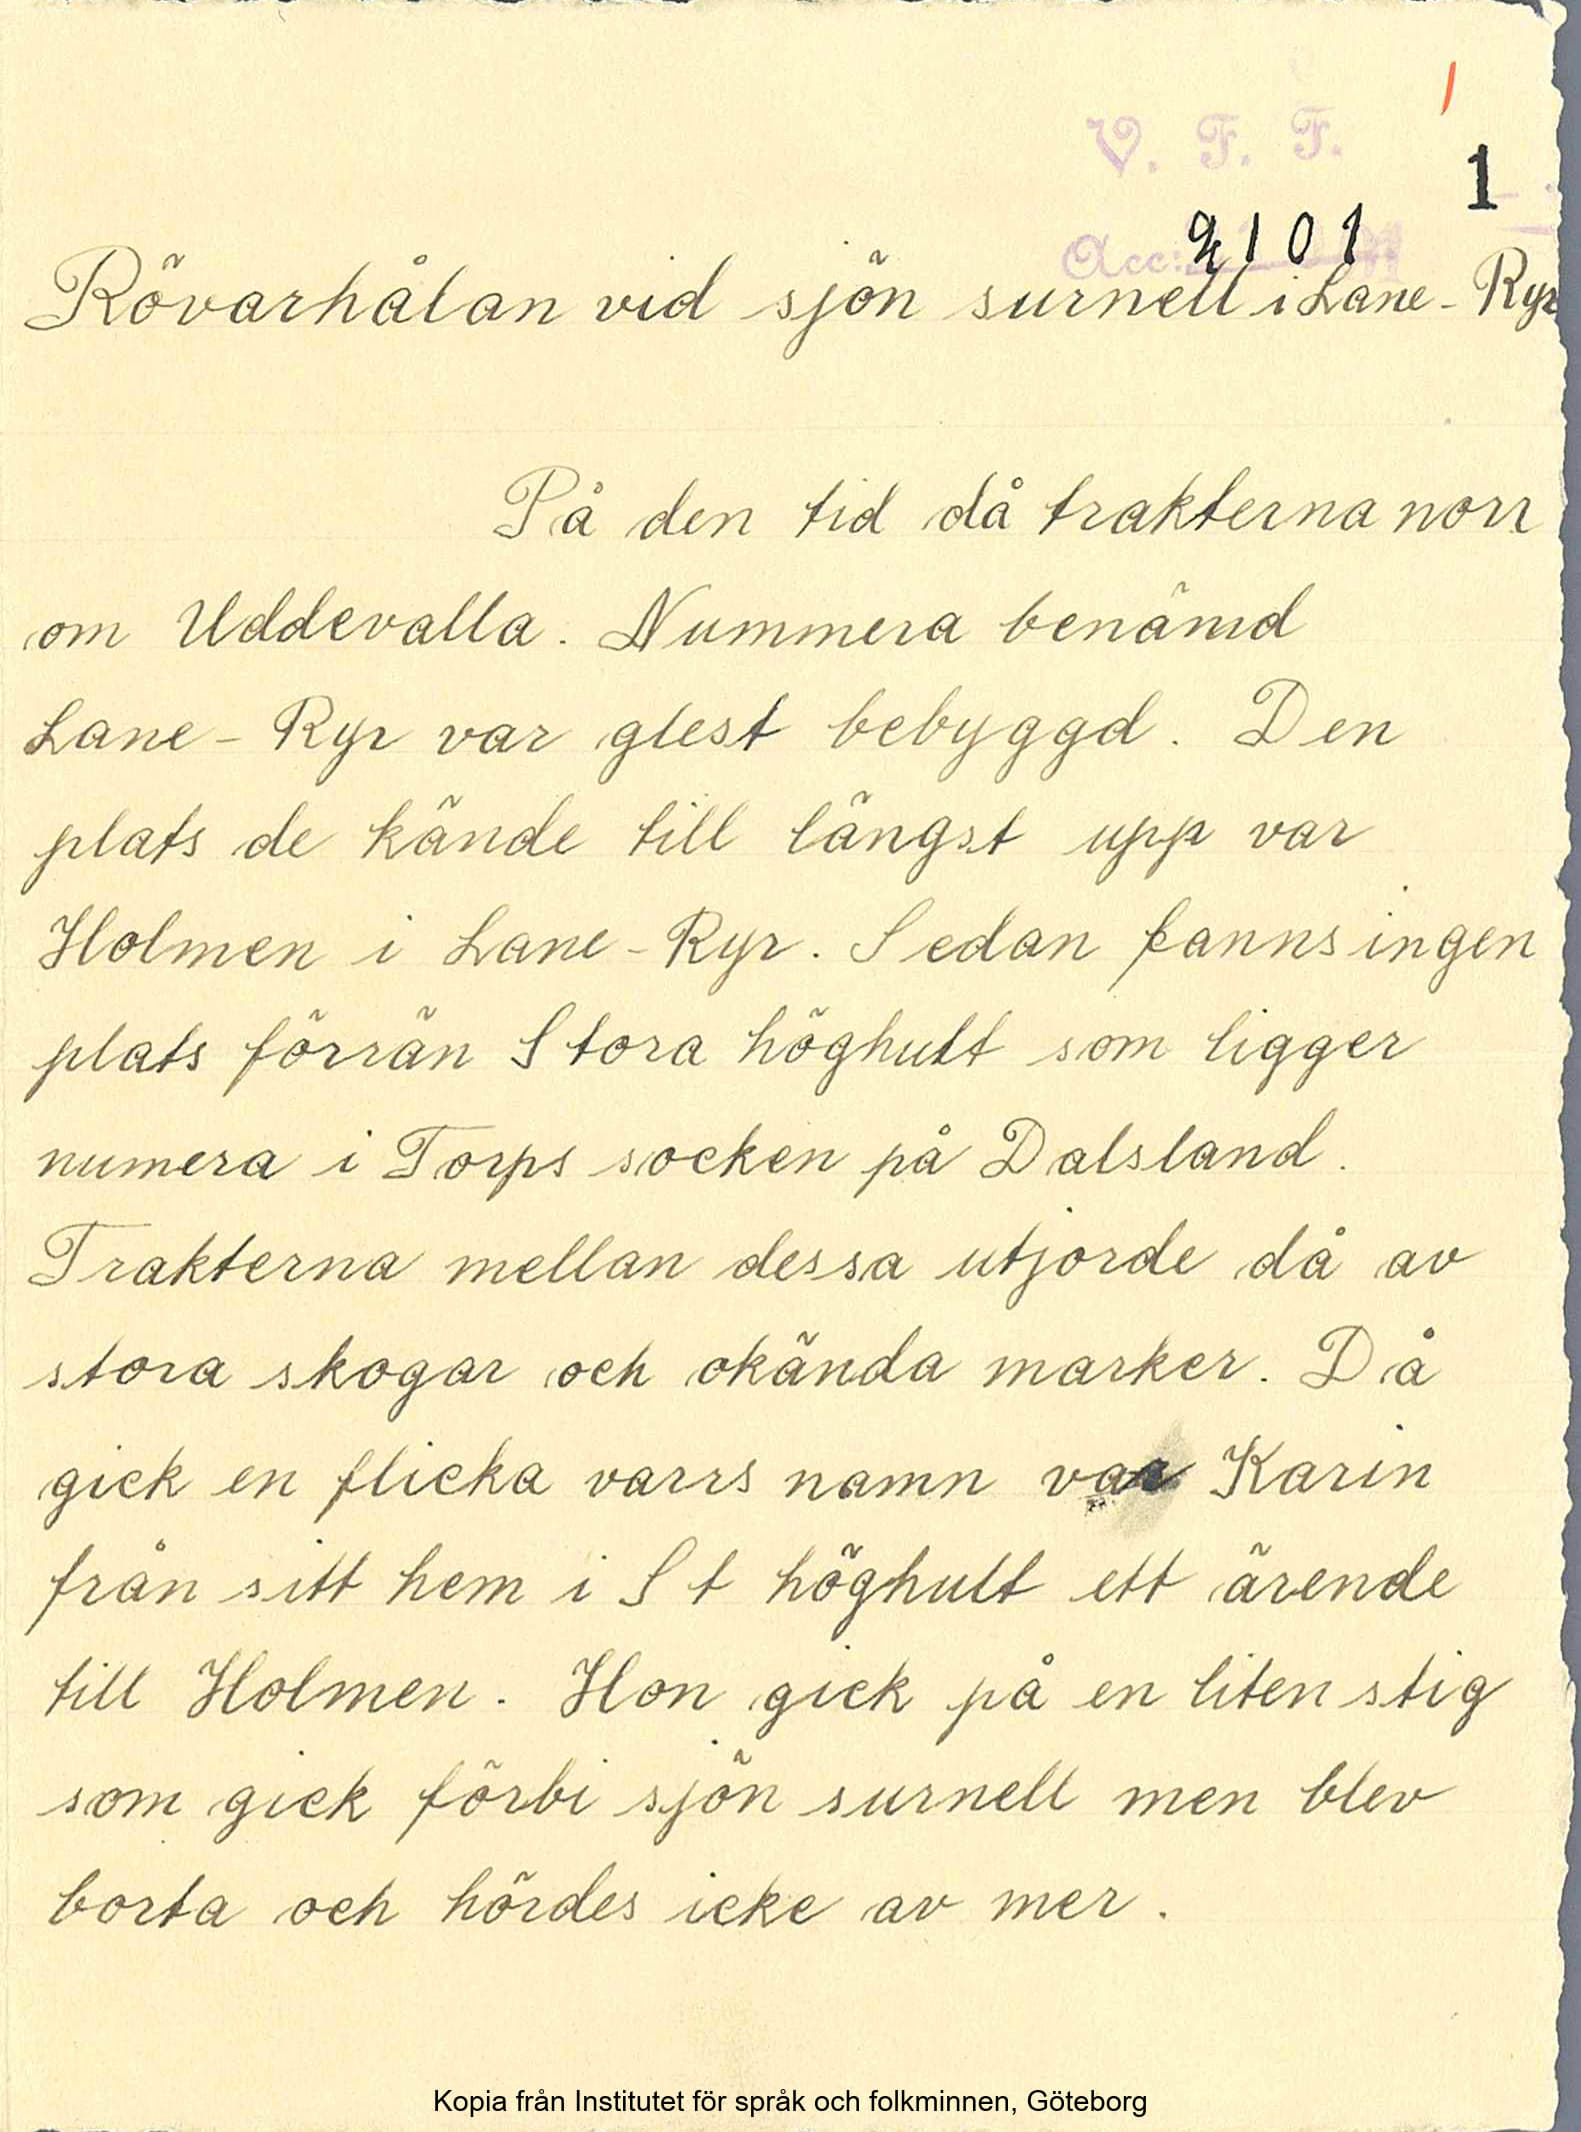 1
V. F. F.
1
Acc: 2101
Rövarhålan vid sjön surnell i Lane-Ryr
På den tid då trakterna norr
om Uddevalla. Nummera benämd
Lane-Ryr var glest bebyggd. Den
plats de kände till längst upp var
Holmen i Lane-Ryr. Sedan fanns ingen
plats förrän Stora höghult som ligger
numera i Torps socken på Dalsland.
Trakterna mellan dessa utjorde då av
stora skogar och okända marker. Då
gick en flicka varrs namn var Karin
från sitt hem i St höghult ett ärende
till Holmen. Hon gick på en liten stig
som gick förbi sjön surnell men blev
borta och hördes icke av mer.
Kopia från Institutet för språk och folkminnen, Göteborg